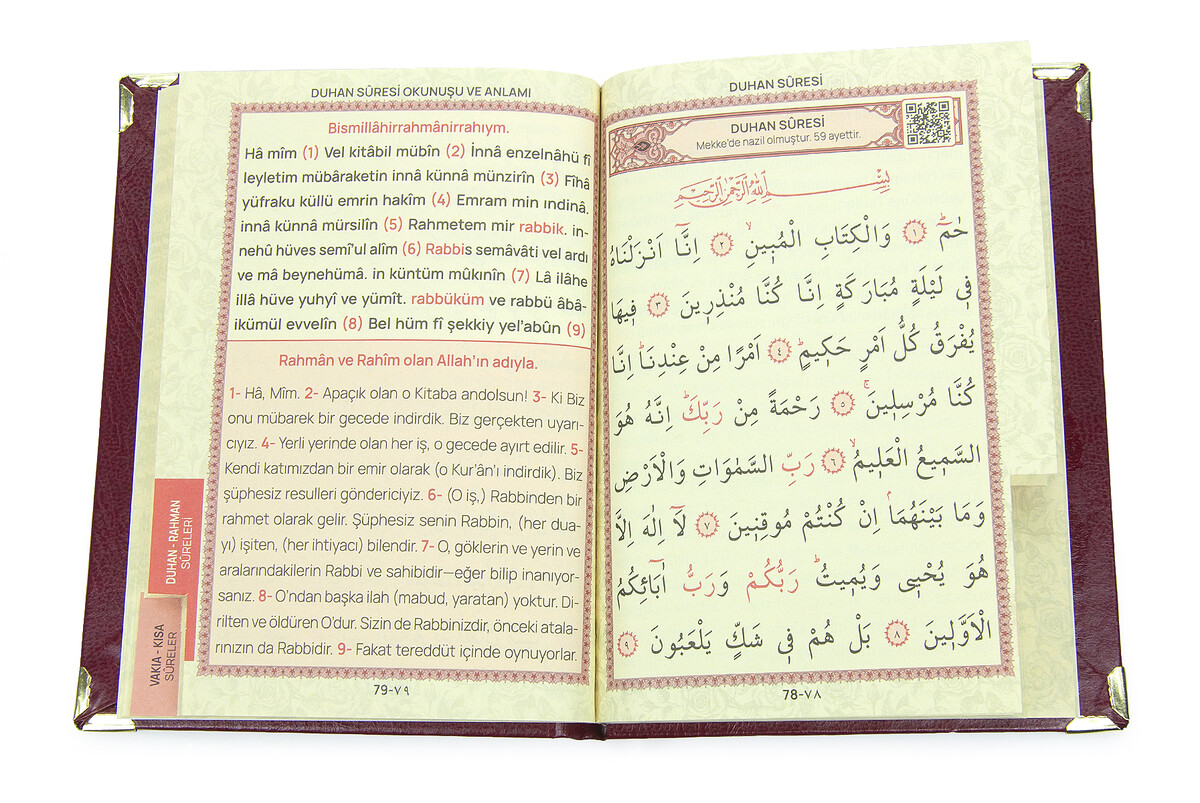 DUHAN SÛRESİ OKUNUŞU VE ANLAMI
Bismillâhirrahmânirrahıym.
Hâ mîm (1) Vel kitâbil mübîn (2) İnnâ enzelnâhü fî
leyletim mübâraketin innâ künnâ münzirîn (3) Fîhâ
yüfraku küllü emrin hakîm (4) Emram min ındinâ.
innâ künnâ mürsilîn (5) Rahmetem mir rabbik. in-
nehû hüves semî'ul alîm (6) Rabbis semâvâti vel ardı
ve mâ beynehümâ. in küntüm mûkınîn (7) Lâ ilâhe
illâ hüve yuhyî ve yümît. rabbüküm ve rabbü âbâ-
ikümül evvelîn (8) Bel hüm fî şekkiy yel'abûn (9)
Rahmân ve Rahîm olan Allah'ın adıyla.
1- Hâ, Mîm. 2- Apaçık olan o Kitaba andolsun! 3- Ki Biz
onu mübarek bir gecede indirdik. Biz gerçekten uyarı-
cıyız. 4- Yerli yerinde olan her iş, o gecede ayırt edilir. 5-
Kendi katımızdan bir emir olarak (o Kur'ân'ı indirdik). Biz
şüphesiz resulleri göndericiyiz. 6- (O iş,) Rabbinden bir
rahmet olarak gelir. Şüphesiz senin Rabbin, (her dua-
yı) işiten, (her ihtiyacı) bilendir. 7- O, göklerin ve yerin ve
aralarındakilerin Rabbi ve sahibidir—eğer bilip inanıyor-
sanız. 8- O'ndan başka ilah (mabud, yaratan) yoktur. Di-
rilten ve öldüren O'dur. Sizin de Rabbinizdir, önceki atala-
rınızın da Rabbidir. 9- Fakat tereddüt içinde oynuyorlar.
79-٧٩
DUHAN - RAHMAN
SÛRELERİ
VAKIA - KISA
SÛRELER
DUHAN SÛRESİ
DUHAN SÛRESİ
Mekke'de nazil olmuştur. 59 ayettir.
بِسْمِ اللّٰهِ الرَّحْمٰنِ الرَّحِيمِ
حٰمٓ ﴿١﴾ وَالْكِتَابِ الْمُبٖينِۙ ﴿٢﴾ اِنَّٓا اَنْزَلْنَاهُ
فٖي لَيْلَةٍ مُبَارَكَةٍ اِنَّا كُنَّا مُنْذِرٖينَ ﴿٣﴾ فٖيهَا
يُفْرَقُ كُلُّ اَمْرٍ حَكٖيمٍۙ ﴿٤﴾ اَمْرًا مِنْ عِنْدِنَاۜ اِنَّا
كُنَّا مُرْسِلٖينَۚ ﴿٥﴾ رَحْمَةً مِنْ رَبِّكَۜ اِنَّهُ هُوَ
السَّمٖيعُ الْعَلٖيمُۙ ﴿٦﴾ رَبِّ السَّمٰوَاتِ وَالْاَرْضِ
وَمَا بَيْنَهُمَاۢ اِنْ كُنْتُمْ مُوقِنٖينَ ﴿٧﴾ لَٓا اِلٰهَ اِلَّا
هُوَ يُحْيٖي وَيُمٖيتُۜ رَبُّكُمْ وَرَبُّ اٰبَٓائِكُمُ
الْاَوَّلٖينَ ﴿٨﴾ بَلْ هُمْ فٖي شَكٍّ يَلْعَبُونَ ﴿٩﴾
78-٧٨